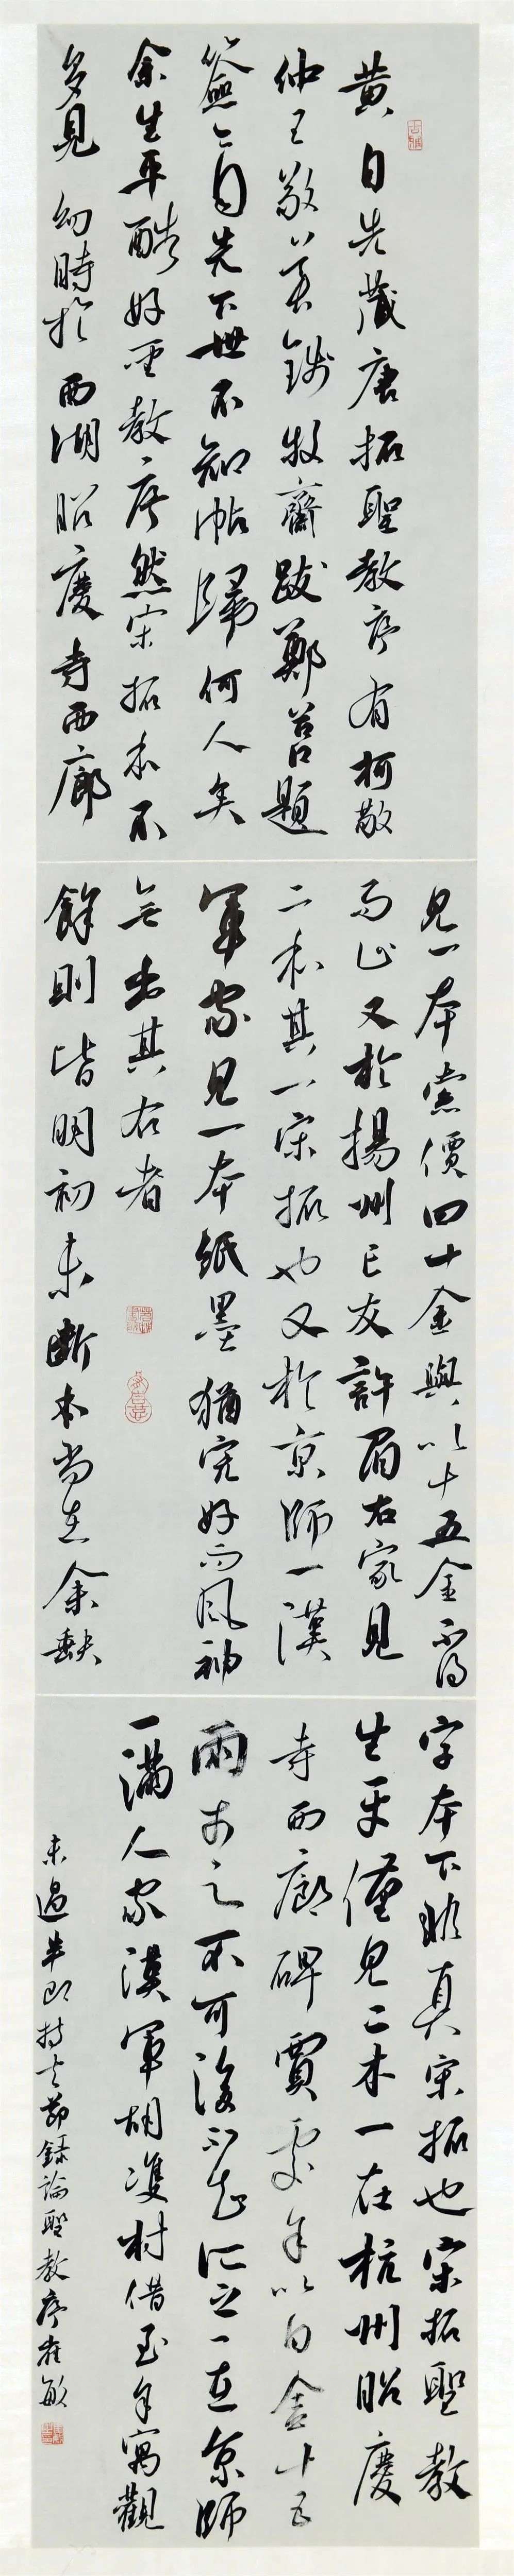 黄自先藏唐拓聖教序有柯敬
仲王敬美錢牧齋跋鄭苕題
簽自先下世不知帖歸何人矣
余生平酷好聖教序然宋拓本不
多見幼時於西湖昭慶寺西廊
見一本索價四十金與以十五金不得
而止又於揚州亡友許眉右家見
二本其一宋拓也又於京師一漢
軍家見一本紙墨猶完好而風神
無出其右者
餘則皆明初未斷本尚在余缺
字本下眇真宋拓也宋拓聖教
生平僅見二本一在杭州昭慶
寺西廊碑賈處余以白金十五
兩市之不可後不知所之一在京師
一滿人家漢軍胡雙村借至余寓觀
未過半即持去節錄論聖教序崔敏